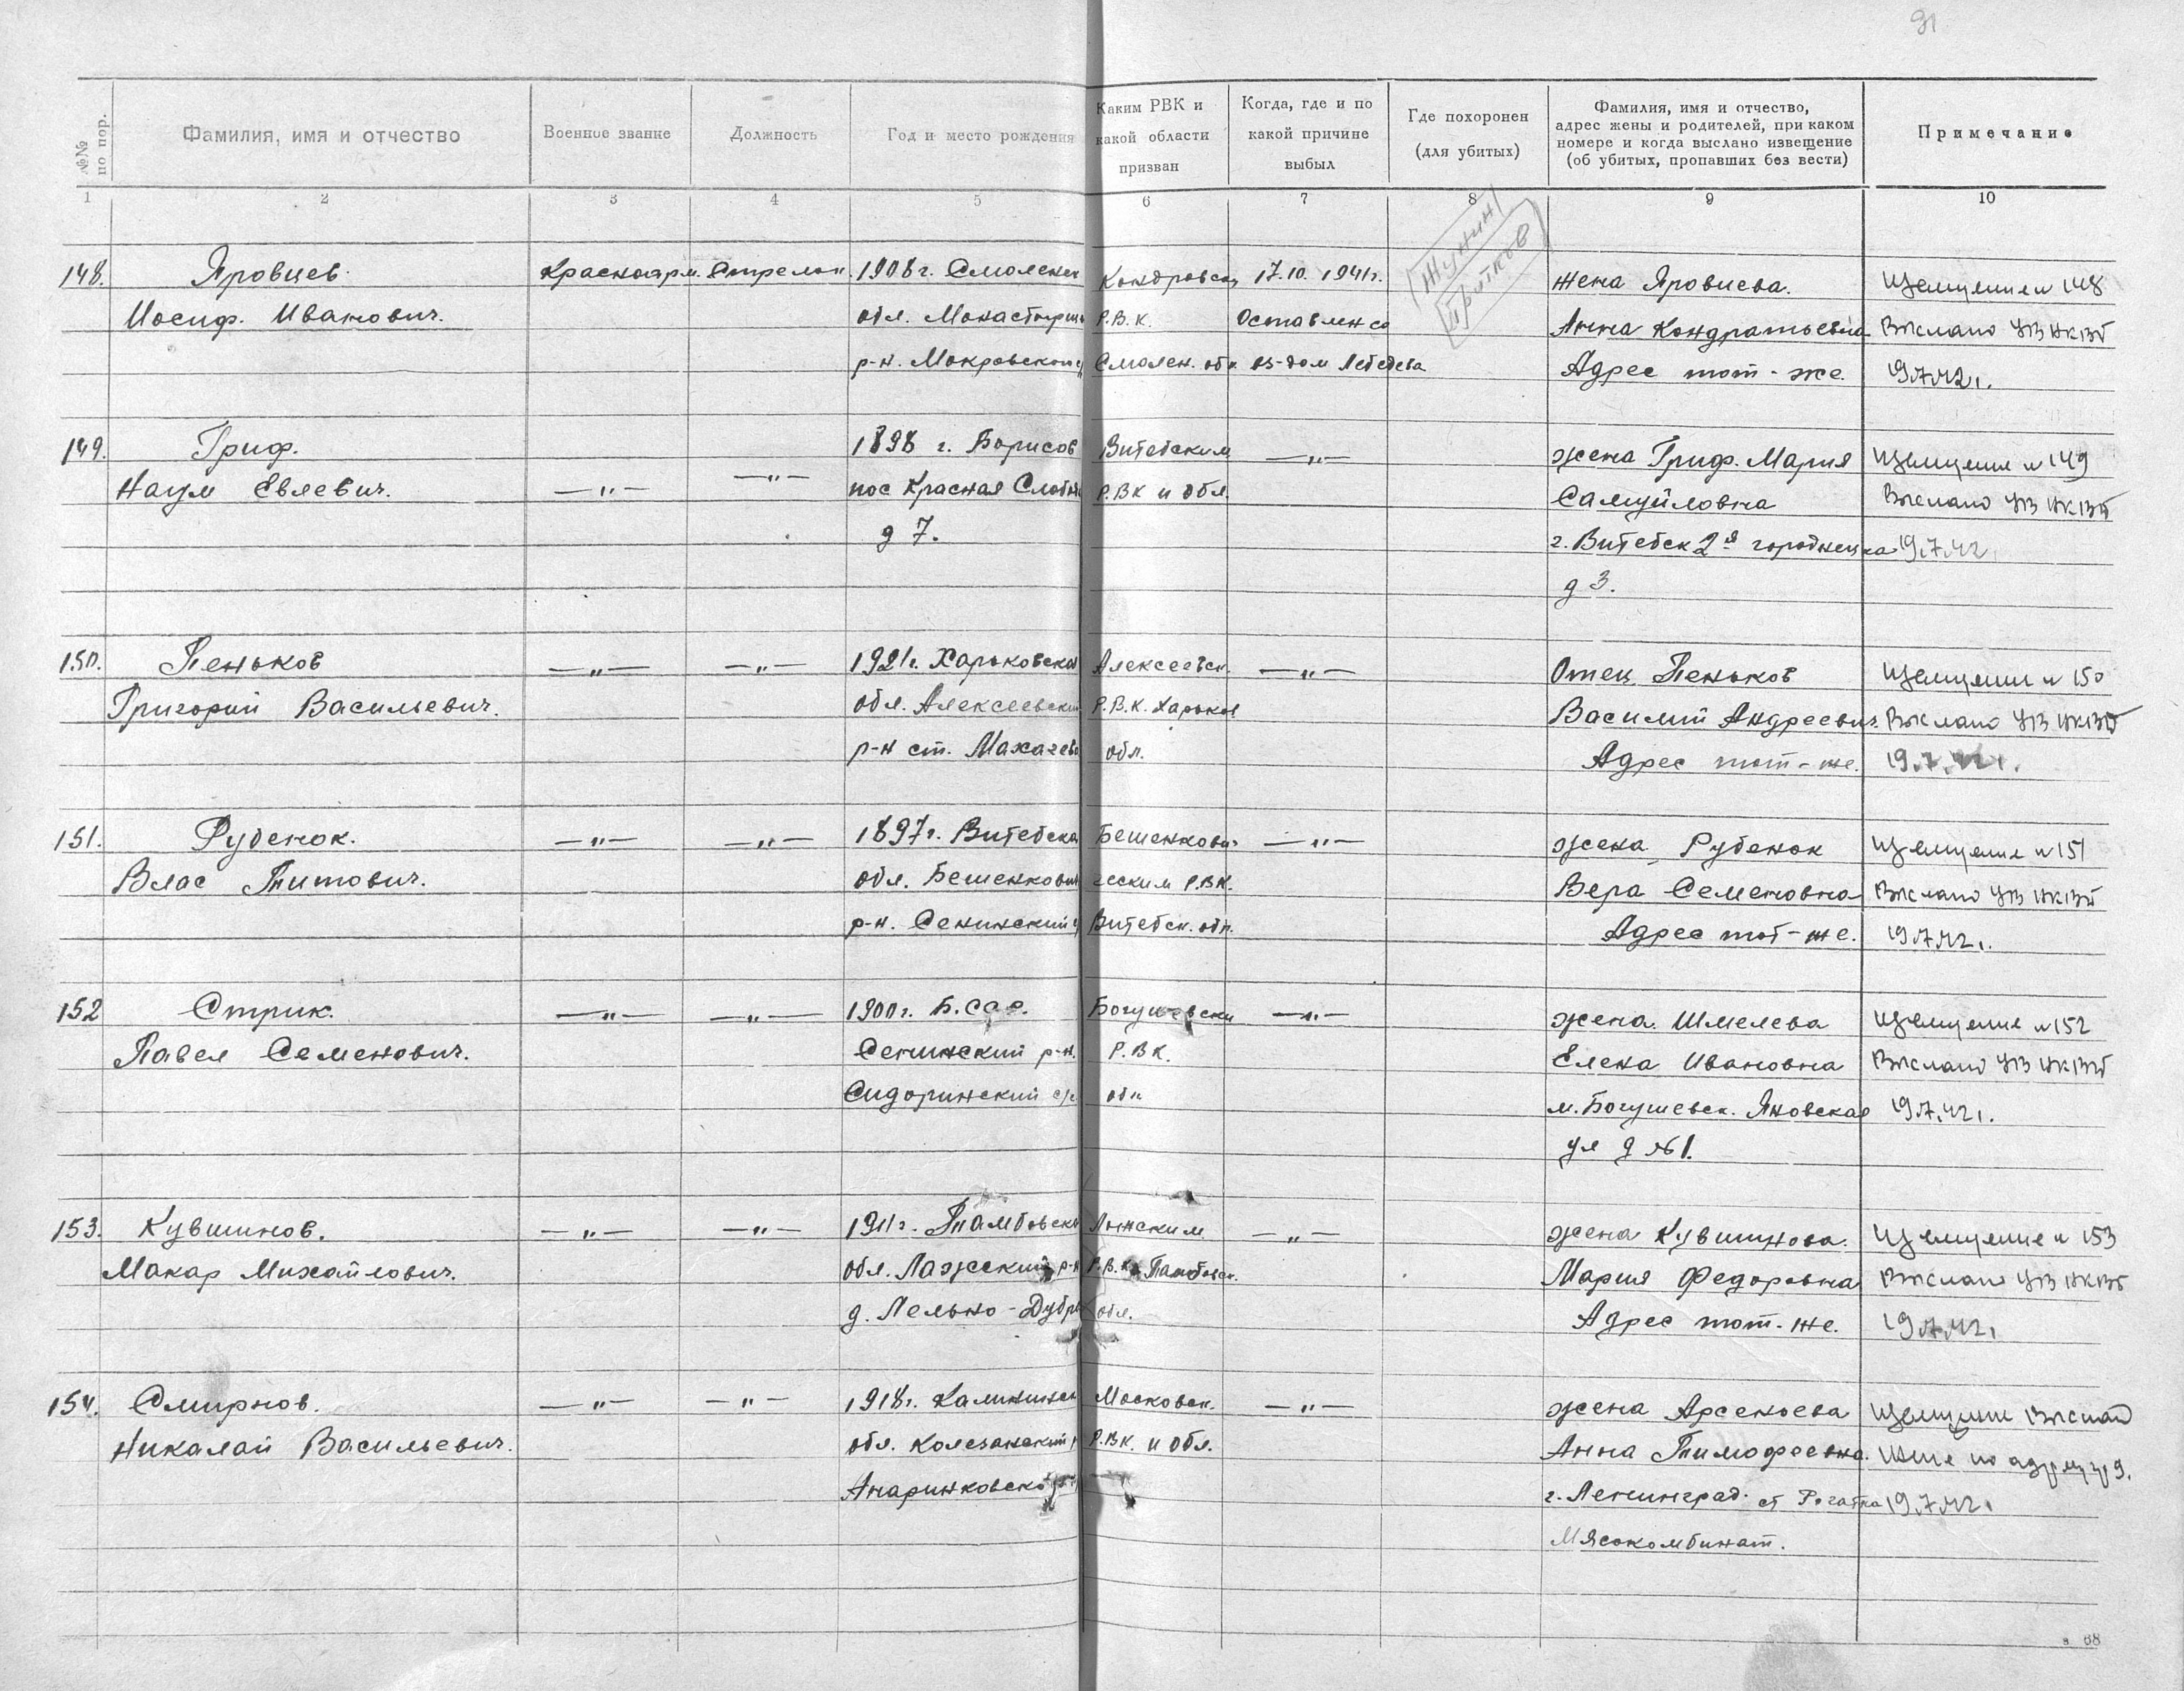 31
№№ по пор.
Фамилия, имя и отчество
Военное звание
Должность
Год и место рождения
Каким РВК и какой области призван
Когда, где и по какой причине выбыл
Где похоронен (для убитых)
Фамилия, имя и отчество, адрес жены и родителей, при каком номере и когда выслано извещение (об убитых, пропавших без вести)
Примечание
1 2 3 4 5 6 7 8 9 10
148. Яровцев Красноарм. Стрелок 1908 г. Смоленск Кондровск 17.10.1941г. жена Яровцева. Извещение н 148
Иосиф. Иванович. обл. Монастырщ Р.В.К. Оставлен со Анна Кондратьевна Выслано УЗ НКВД
р-н. Мокровский Смолен. обл. вз-дом Лебедева Адрес тот-же. 19.7.42г.
149. Гриф. 1898 г. Борисов Витебским —"— жена Гриф. Мария Извещение н 149
Наум Евлевич. —"— —"— пос Красная Слобод Р.ВК и обл. Самуйловна Выслано
д 7. г. Витебск 2я городнецка 19.7.42
д 3.
150. Пеньков —"— —"— 1921г. Харьковская Алексеевск. —"— Отец Пеньков Извещение н 150
Григорий Васильевич. обл. Алексеевский Р.В.К. Харьков Василий Андреевич. Выслано
р-н ст. обл. Адрес тот-же. 19.7.42г.
151. Рубенок. —"— —"— 1897г. Витебска Бешенкови- —"— жена Рубенок Извещение н 151
Влас Титович. обл. Бешенкович ческим Р.ВК. Вера Семеновна Выслано
р-н. Сенинский Витебск. обл. Адрес тот-же. 19.7.42г.
152 Стрик. —"— —"— 1900г. Б.ССР. Богушевски —"— жена Шмелева Извещение н 152
Павел Семенович. Сенинский р-н. Р.ВК. Елена Ивановна Выслано
Сидоринский с/с обл м. Богушевск. Яновская 19.7.42г.
ул д №1.
153. Кувшинов. —"— —"— 1911г. Тамбовска —"— жена Кувшинова. Извещение н 153
Макар Михайлович. обл. р-н Р.В.К. Тамбовск. Мария Федоровна Выслано
д. обл. Адрес тот-же. 19.7.42г.
154. Смирнов. —"— —"— 1918г. Калининск Московск. —"— жена Арсеньева Извещение
Николай Васильевич. обл. Р.ВК. и обл. Анна Тимофеевна.
г. Ленинград. ст Рогатка 19.7.42г.
Мясокомбинат.
68